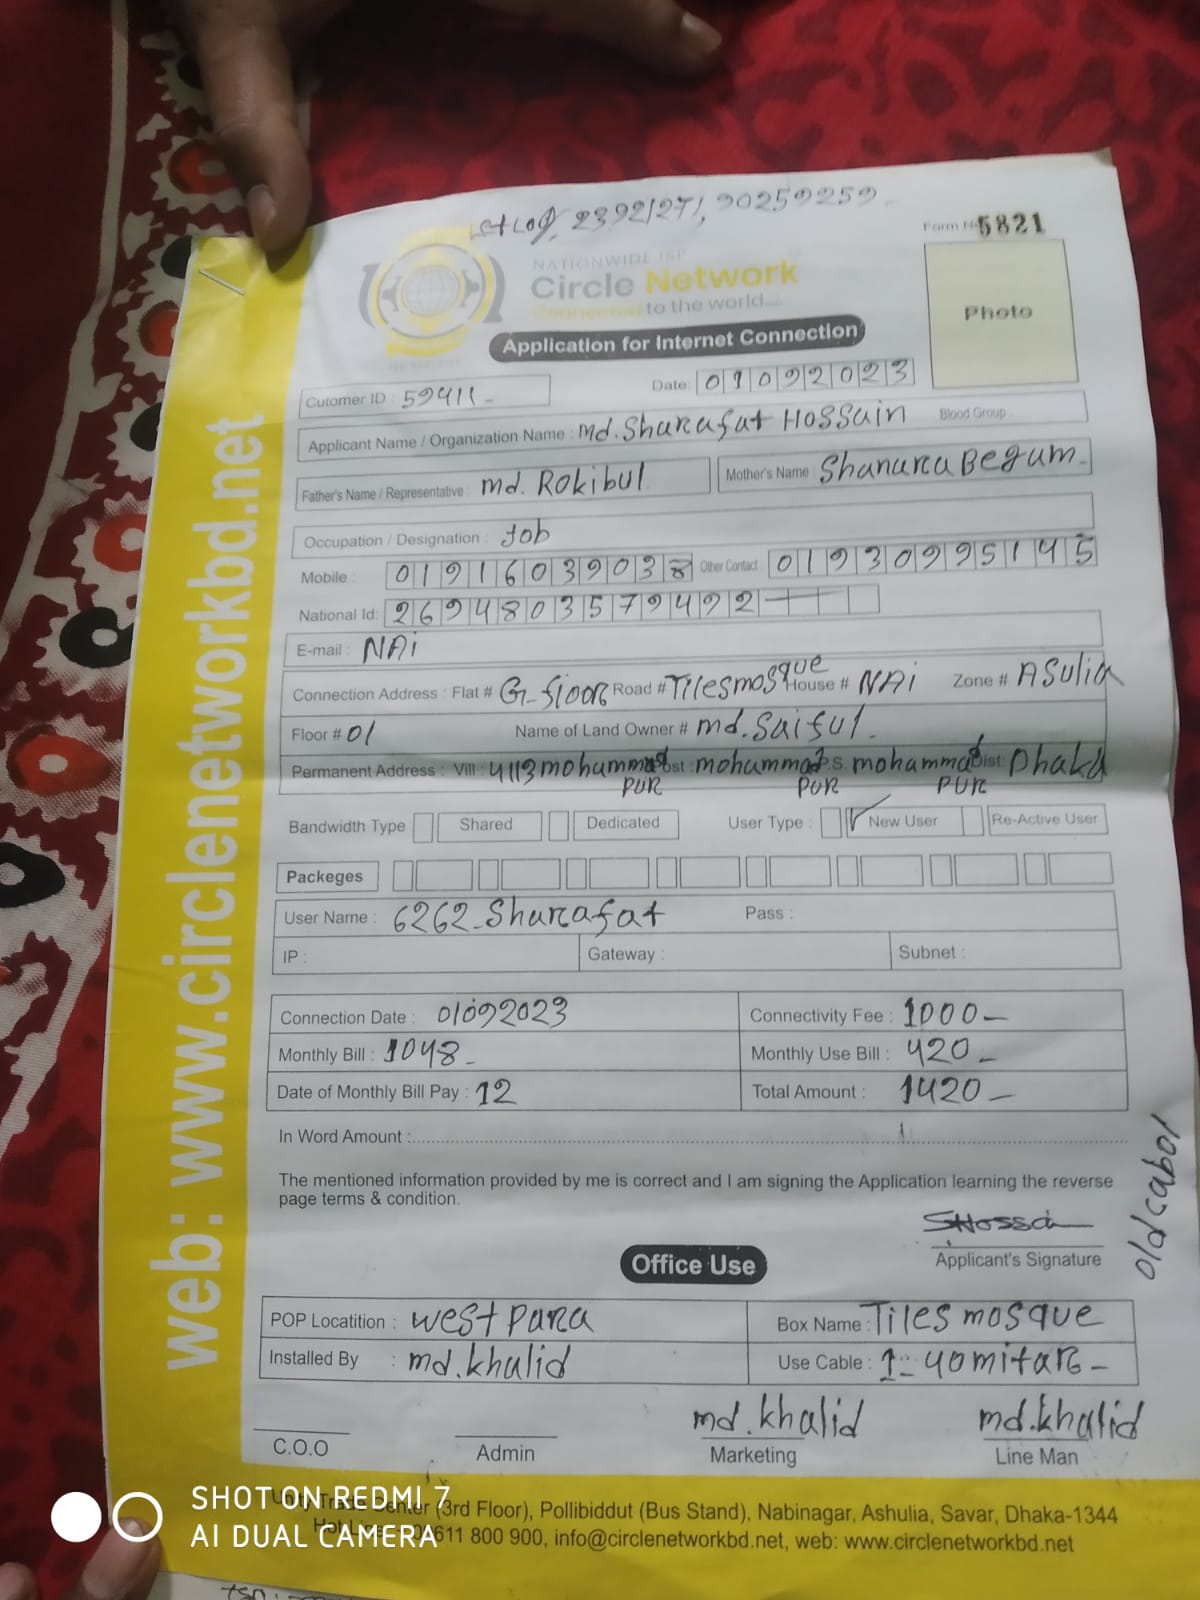 Form No 5821
NATIONWIDE ISP
Circle Network
Connected to the world....
Application for Internet Connection
Photo
Date: 01092023
Cutomer ID : 59411
Applicant Name / Organization Name : Md. Sharafat Hossain Blood Group :
Father's Name / Representative : md. Rokibul Mother's Name : Shanara Begum.
Occupation / Designation : Job
Mobile : 01916039038 Other Contact : 01930995145
National Id: 2694803579492
E-mail : NAi
Connection Address : Flat # G-floor Road # Tilesmosque House # NAi Zone # ASulia
Floor # 01 Name of Land Owner # md. Saiful.
Permanent Address : Vill : 4113 mohammad pur Post : mohammad pur P.S. mohammad pur Dist: Dhaka
Bandwidth Type Shared Dedicated User Type : New User Re-Active User
Packeges
User Name : 6262_Sharafat Pass :
IP : Gateway : Subnet :
Connection Date : 01092023 Connectivity Fee : 1000-
Monthly Bill : 1048- Monthly Use Bill : 420-
Date of Monthly Bill Pay : 12 Total Amount : 1420-
In Word Amount :
The mentioned information provided by me is correct and I am signing the Application learning the reverse
page terms & condition.
SHossain
Applicant's Signature
old cabol
Office Use
POP Locatition : west para Box Name : Tiles mosque
Installed By : md. khalid Use Cable : 1- 40 mitar-
md. khalid md. khalid
C.O.O Admin Marketing Line Man
Center (3rd Floor), Pollibiddut (Bus Stand), Nabinagar, Ashulia, Savar, Dhaka-1344
611 800 900, info@circlenetworkbd.net, web: www.circlenetworkbd.net
web: www.circlenetworkbd.net
SHOT ON REDMI 7
AI DUAL CAMERA